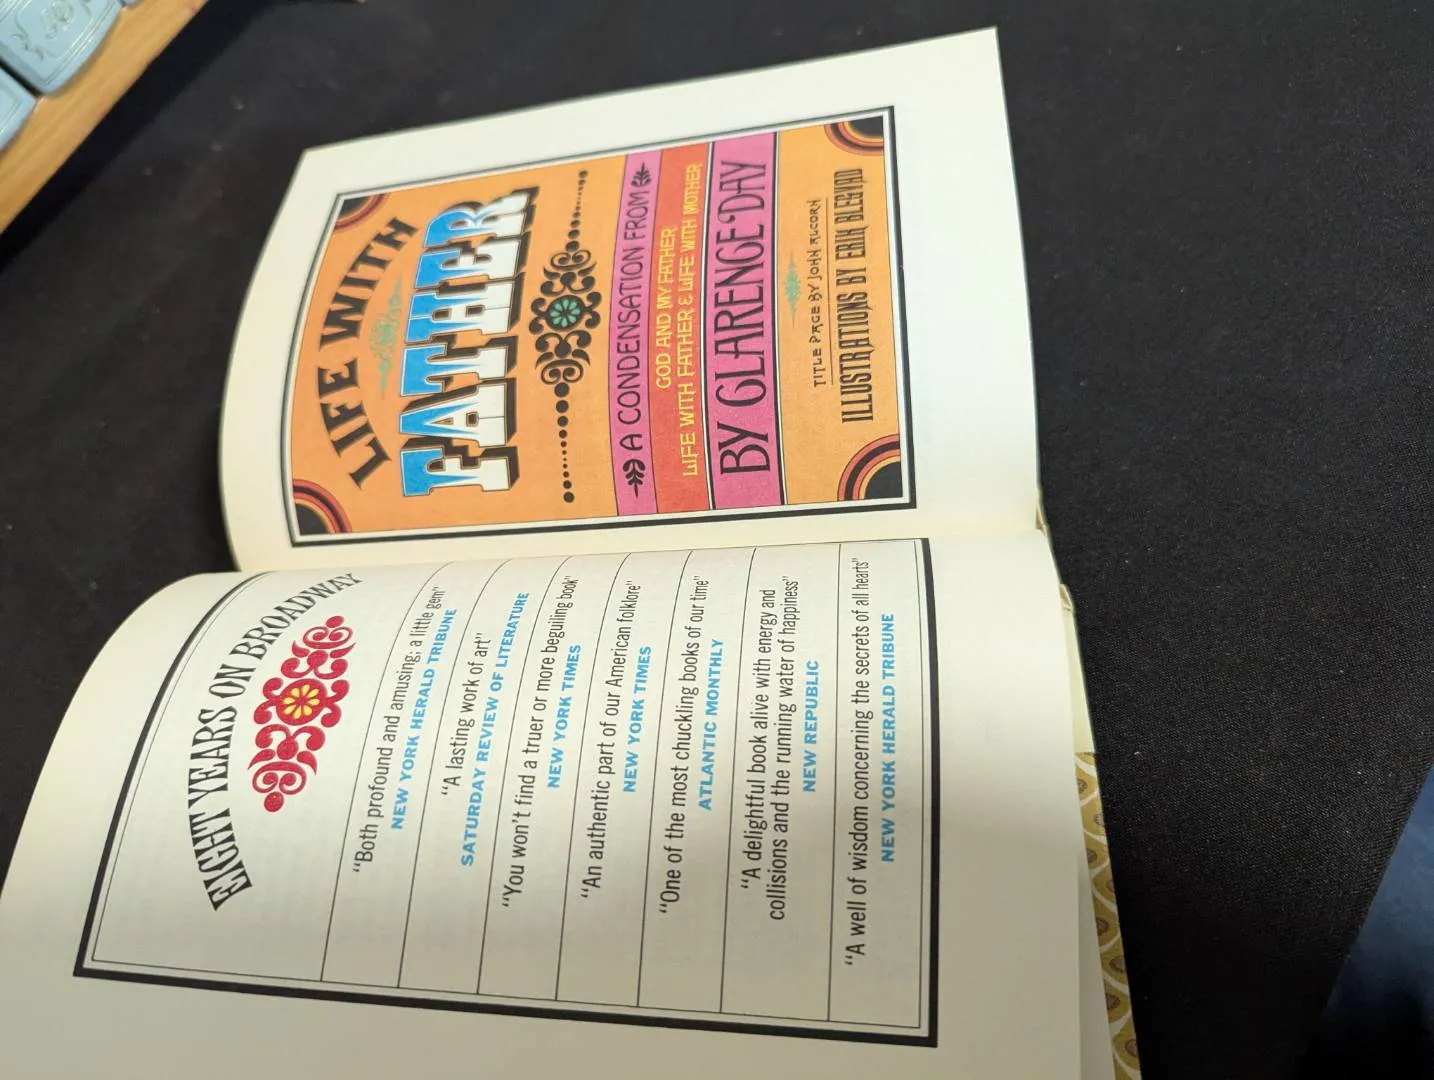 EIGHT YEARS ON BROADWAY
"Both profound and amusing; a little gem"
NEW YORK HERALD TRIBUNE
"A lasting work of art"
SATURDAY REVIEW OF LITERATURE
"You won't find a truer or more beguiling book"
NEW YORK TIMES
"An authentic part of our American folklore"
NEW YORK TIMES
"One of the most chuckling books of our time"
ATLANTIC MONTHLY
"A delightful book alive with energy and
collisions and the running water of happiness"
NEW REPUBLIC
"A well of wisdom concerning the secrets of all hearts"
NEW YORK HERALD TRIBUNE
LIFE WITH
FATHER
A CONDENSATION FROM
GOD AND MY FATHER
LIFE WITH FATHER & LIFE WITH MOTHER
BY CLARENCE DAY
TITLE PAGE BY JOHN ALCORN
ILLUSTRATIONS BY ERIK BLEGVAD